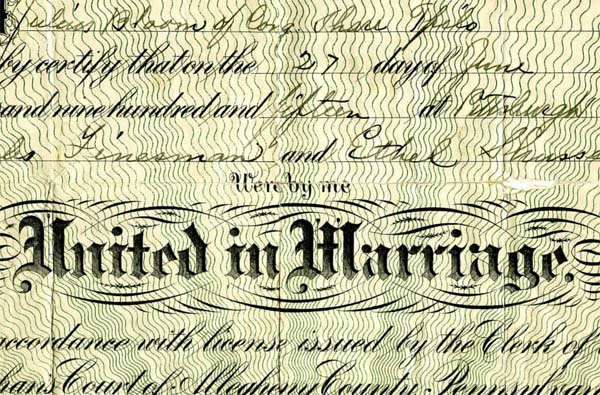 Julius Bloom of Cong Shere This
by certify that on the 27 day of June
and nine hundred and fifteen at Pittsburgh
es Finesman and Ethel Shuss
Were by me
United in Marriage.
accordance with license issued by the Clerk of
hans Court of Allegheny County, Pennsylvan